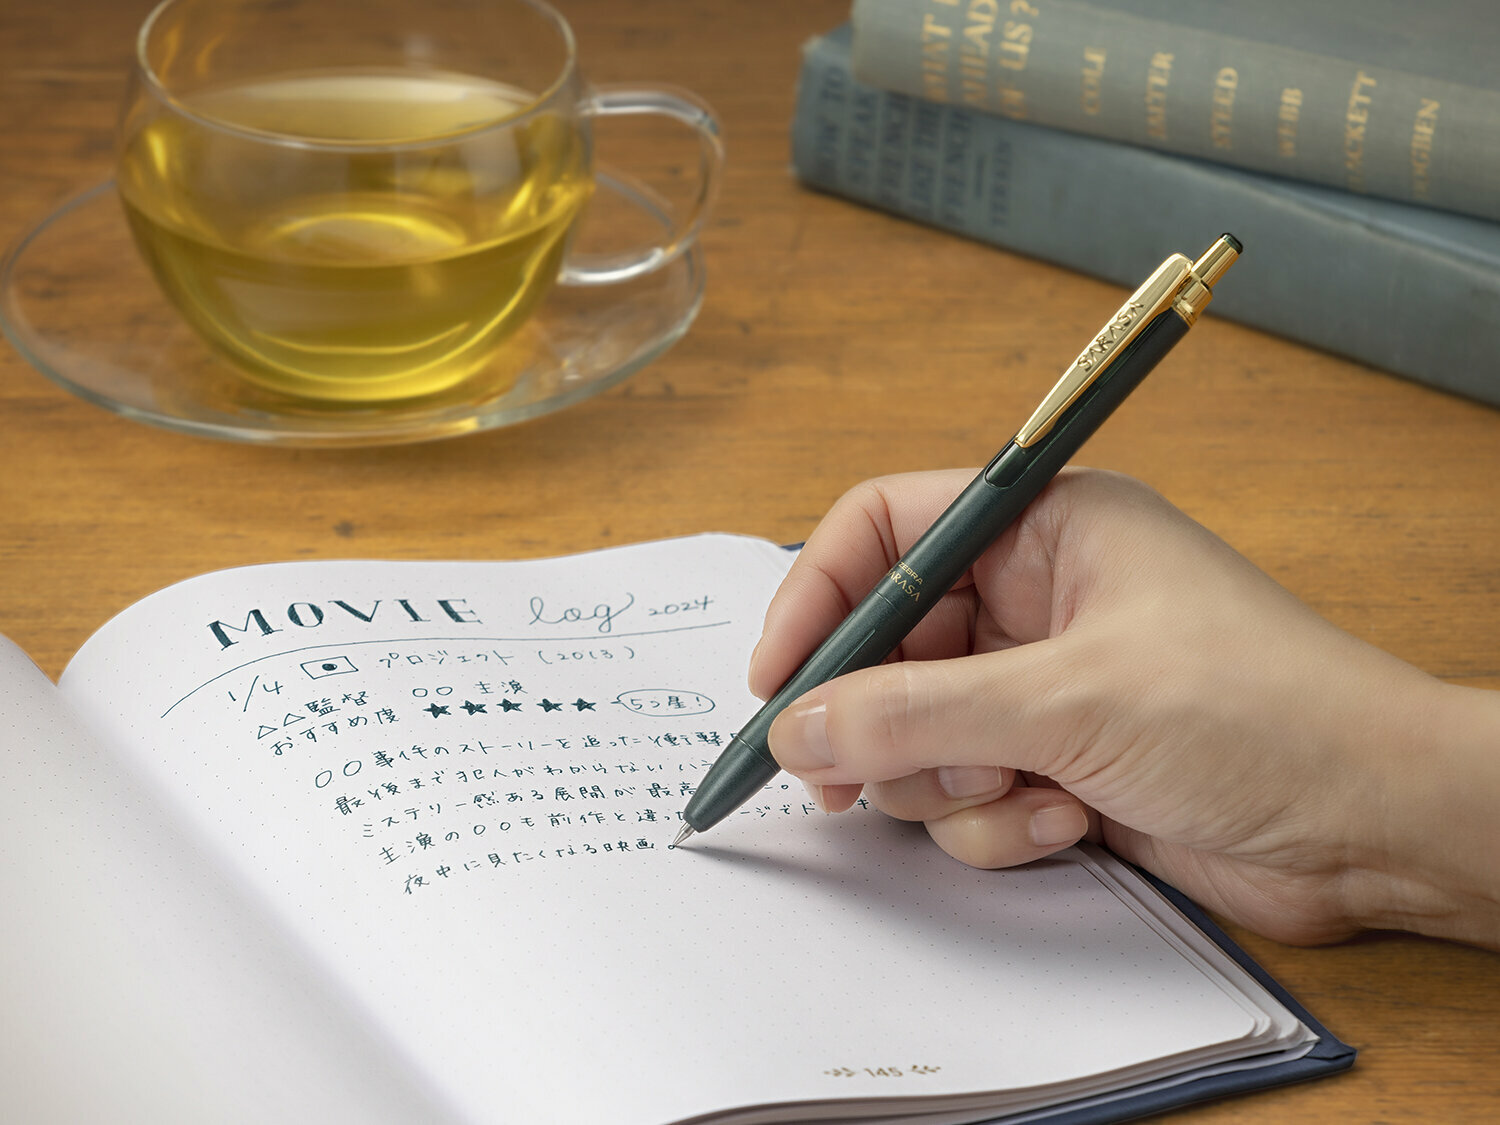 WHAT
AHEAD
OF US?
COLE
PATTER
STEED
WEBB
HOW TO
SPEAK
FRENCH
LIKE THE
FRENCH
SARASA
ZEBRA
SARASA
MOVIE log 2024
1/4 プロジェクト (2013)
△△監督 〇〇主演
おすすめ度 ★★★★★ 5つ星!
〇〇事件のストーリーを追った衝撃
最後まで犯人がわからない
ミステリー感ある展開が最高
主演の〇〇も前作と違っ
夜中に見たくなる映画。
145